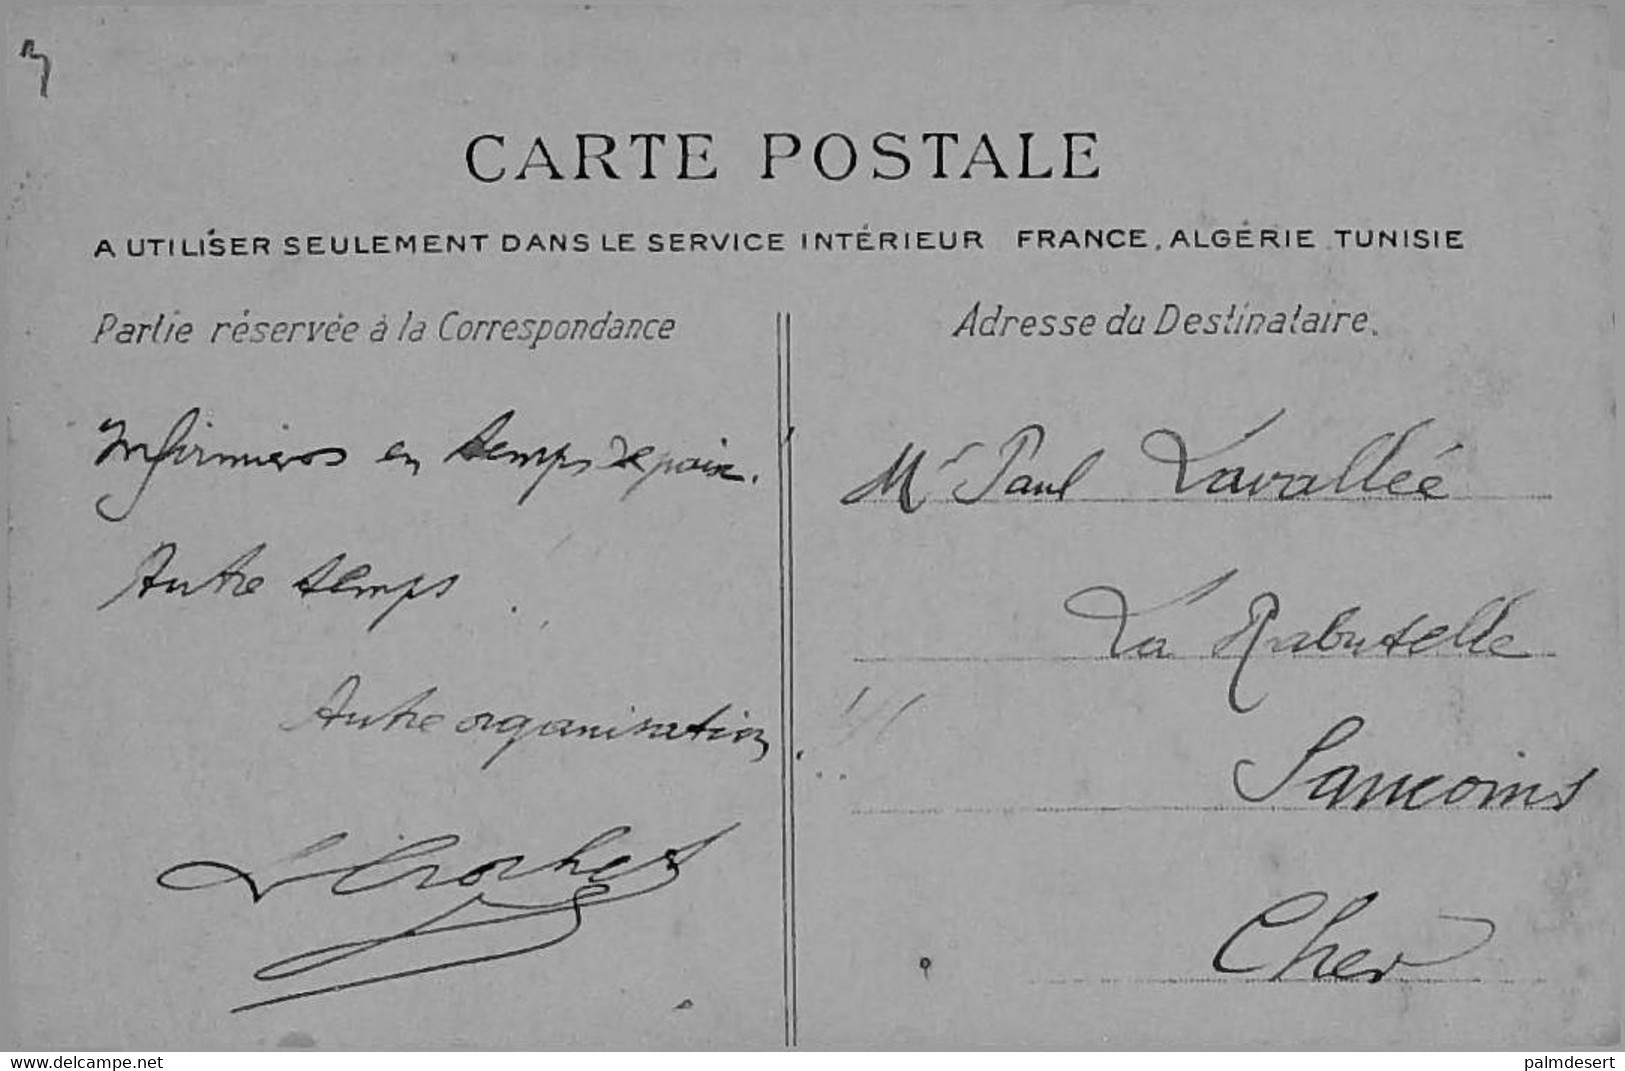 CARTE POSTALE
A UTILISER SEULEMENT DANS LE SERVICE INTÉRIEUR FRANCE, ALGÉRIE TUNISIE
Partie réservée à la Correspondance
Infirmiers en temps de paix.
Autre temps.
Autre organisation.
Adresse du Destinataire.
Mr Paul Lavallée
La Rabutelle
Sancoins
Cher
delcampe.net
palmdesert